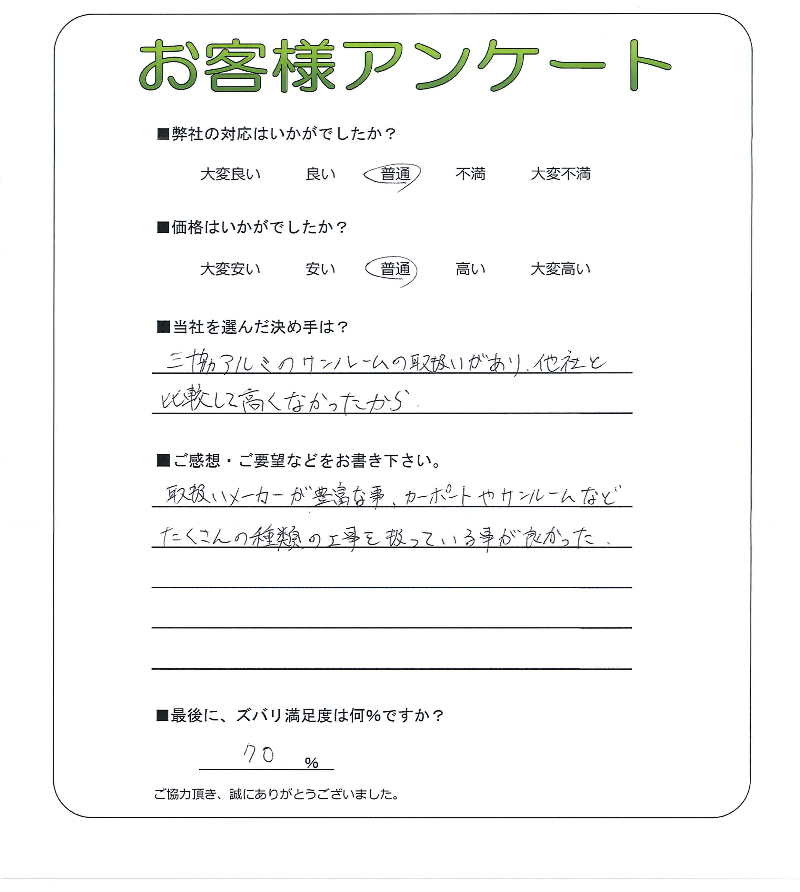 お客様アンケート
■弊社の対応はいかがでしたか？
大変良い 良い 普通 不満 大変不満
■価格はいかがでしたか？
大変安い 安い 普通 高い 大変高い
■当社を選んだ決め手は？
三協アルミのサンルームの取扱いがあり、他社と
比較して高くなかったから.
■ご感想・ご要望などをお書き下さい。
取扱いメーカーが豊富な事、カーポートやサンルームなど
たくさんの種類の工事を扱っている事が良かった.
■最後に、ズバリ満足度は何%ですか？
70 %
ご協力頂き、誠にありがとうございました。